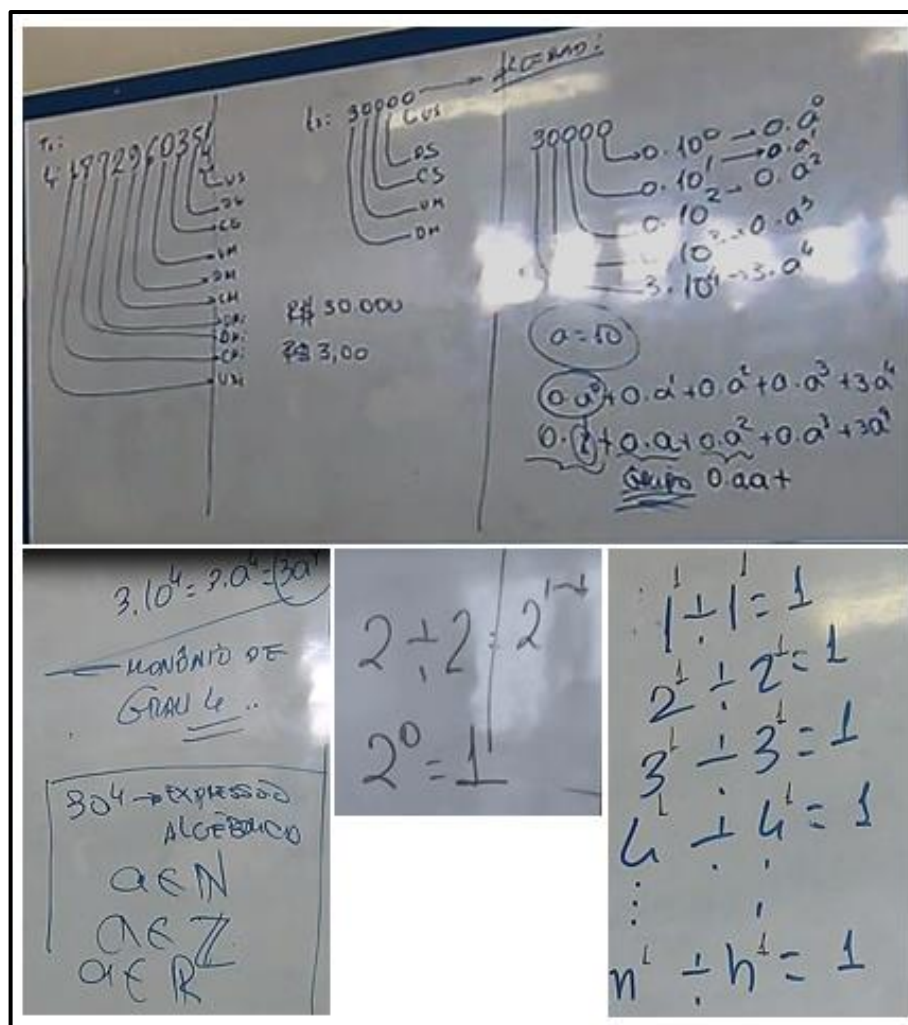 4.187296035
US
CS
UM
DM
CM
R$ 30.000
R$ 3,00
30000
US
DS
CS
UM
DM
30000
0.10⁰ → 0.a⁰
0.10¹ → 0.a¹
0.10² → 0.a²
0.a³
3.10⁴ → 3.a⁴
a = 10
0.a⁰ + 0.a¹ + 0.a² + 0.a³ + 3a⁴
0.1 + 0.a + 0.a² + 0.a³ + 3a⁴
0.aa +
3.10⁴ = 3.a⁴ = 3a⁴
MONÔMIO DE
GRAU 4
3a⁴ → EXPRESSÃO
ALGÉBRICA
a ∈ ℕ
a ∈ ℤ
a ∈ ℝ
2 ÷ 2 = 2¹⁻¹
2⁰ = 1
1¹ ÷ 1¹ = 1
2¹ ÷ 2¹ = 1
3¹ ÷ 3¹ = 1
4¹ ÷ 4¹ = 1
n¹ ÷ n¹ = 1